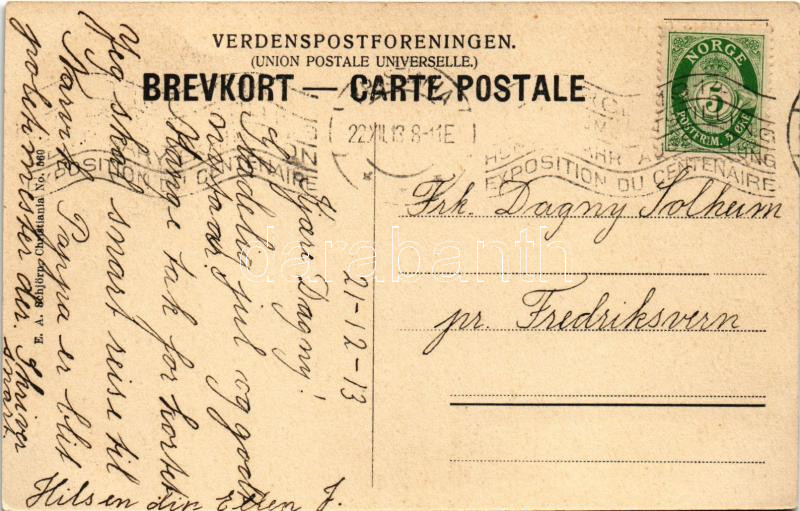 VERDENSPOSTFORENINGEN.
(UNION POSTALE UNIVERSELLE.)
BREVKORT — CARTE POSTALE
NORGE
5
POSTFRIM. 5 ØRE
22 XII 13 8-11E
EXPOSITION DU CENTENAIRE
POSITION DU CENTENAIRE
21-12-13
Kjære Dagny!
Glædelig jul og godt
nytaar!
Mange tak for kortet
Jeg skal snart reise til
Narvik Pappa er blit
politimester der. Skriver
snart.
Hilsen din Ellen J.
Frk. Dagny Solheim
pr. Fredriksvern
E. A. Schjörn, Christiania No. 560
darabanth